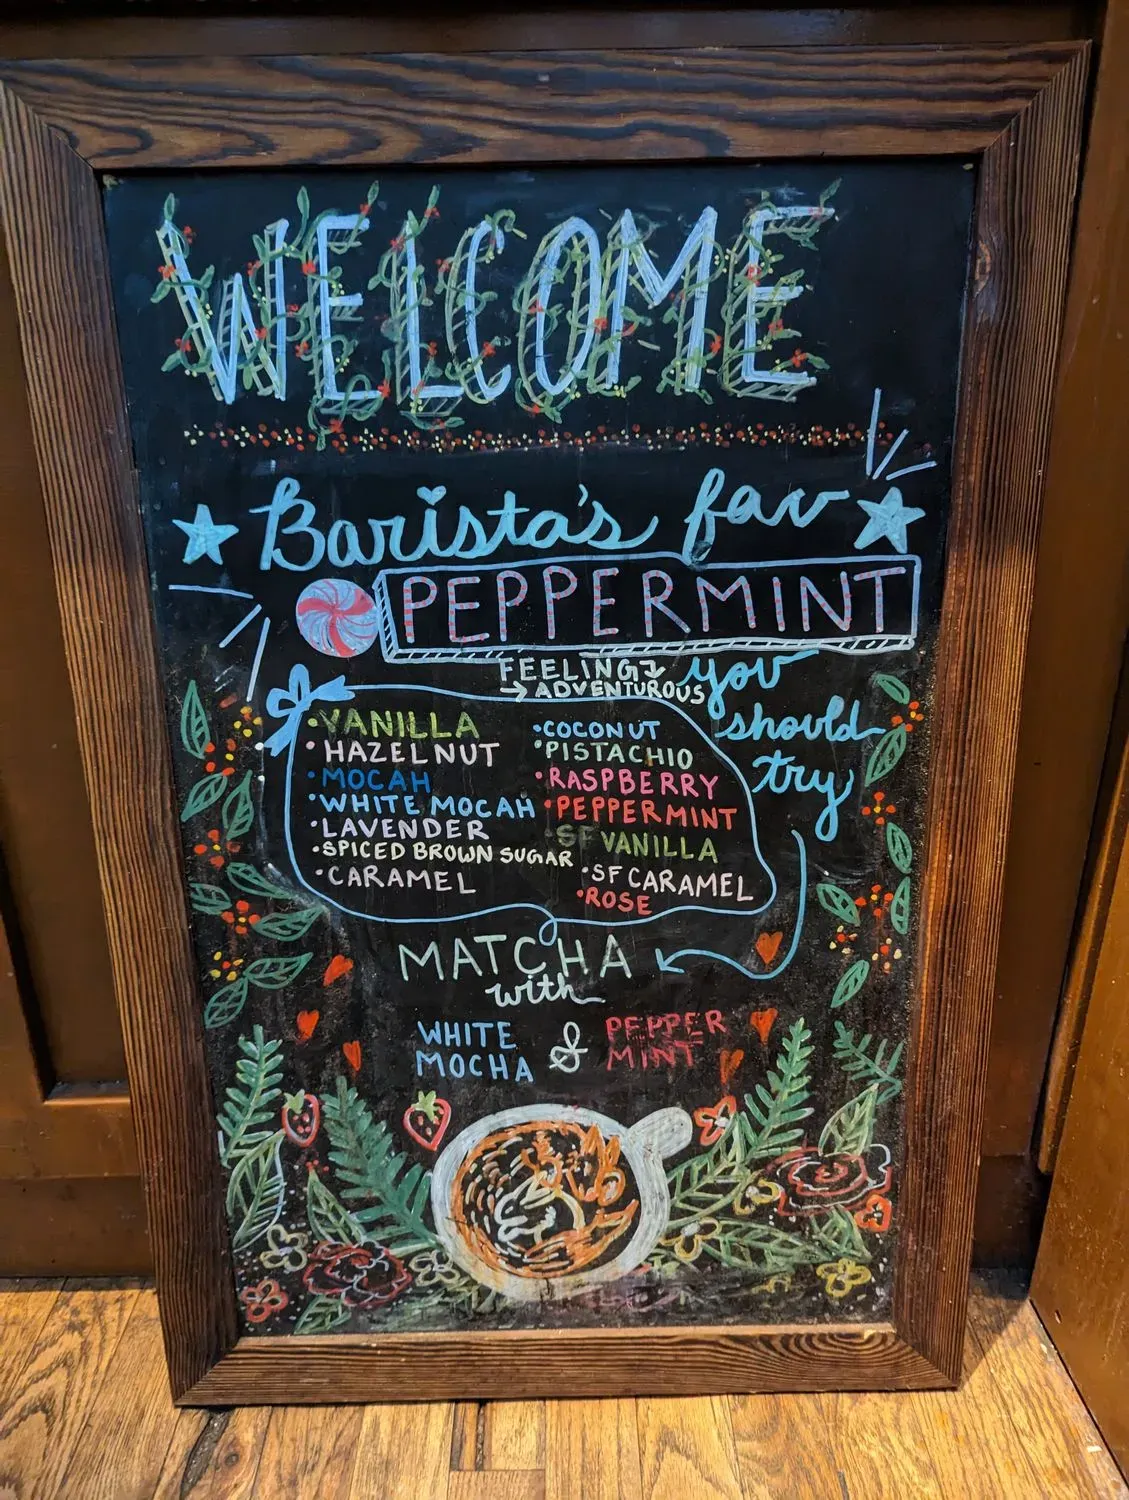 WELCOME
Barista's fav
PEPPERMINT
FEELING
ADVENTUROUS
you
should
try
• VANILLA
• HAZELNUT
• MOCAH
• WHITE MOCAH
• LAVENDER
• SPICED BROWN SUGAR
• CARAMEL
• COCONUT
• PISTACHIO
• RASPBERRY
• PEPPERMINT
• SF VANILLA
• SF CARAMEL
• ROSE
MATCHA
with
WHITE
MOCHA
&
PEPPER
MINT